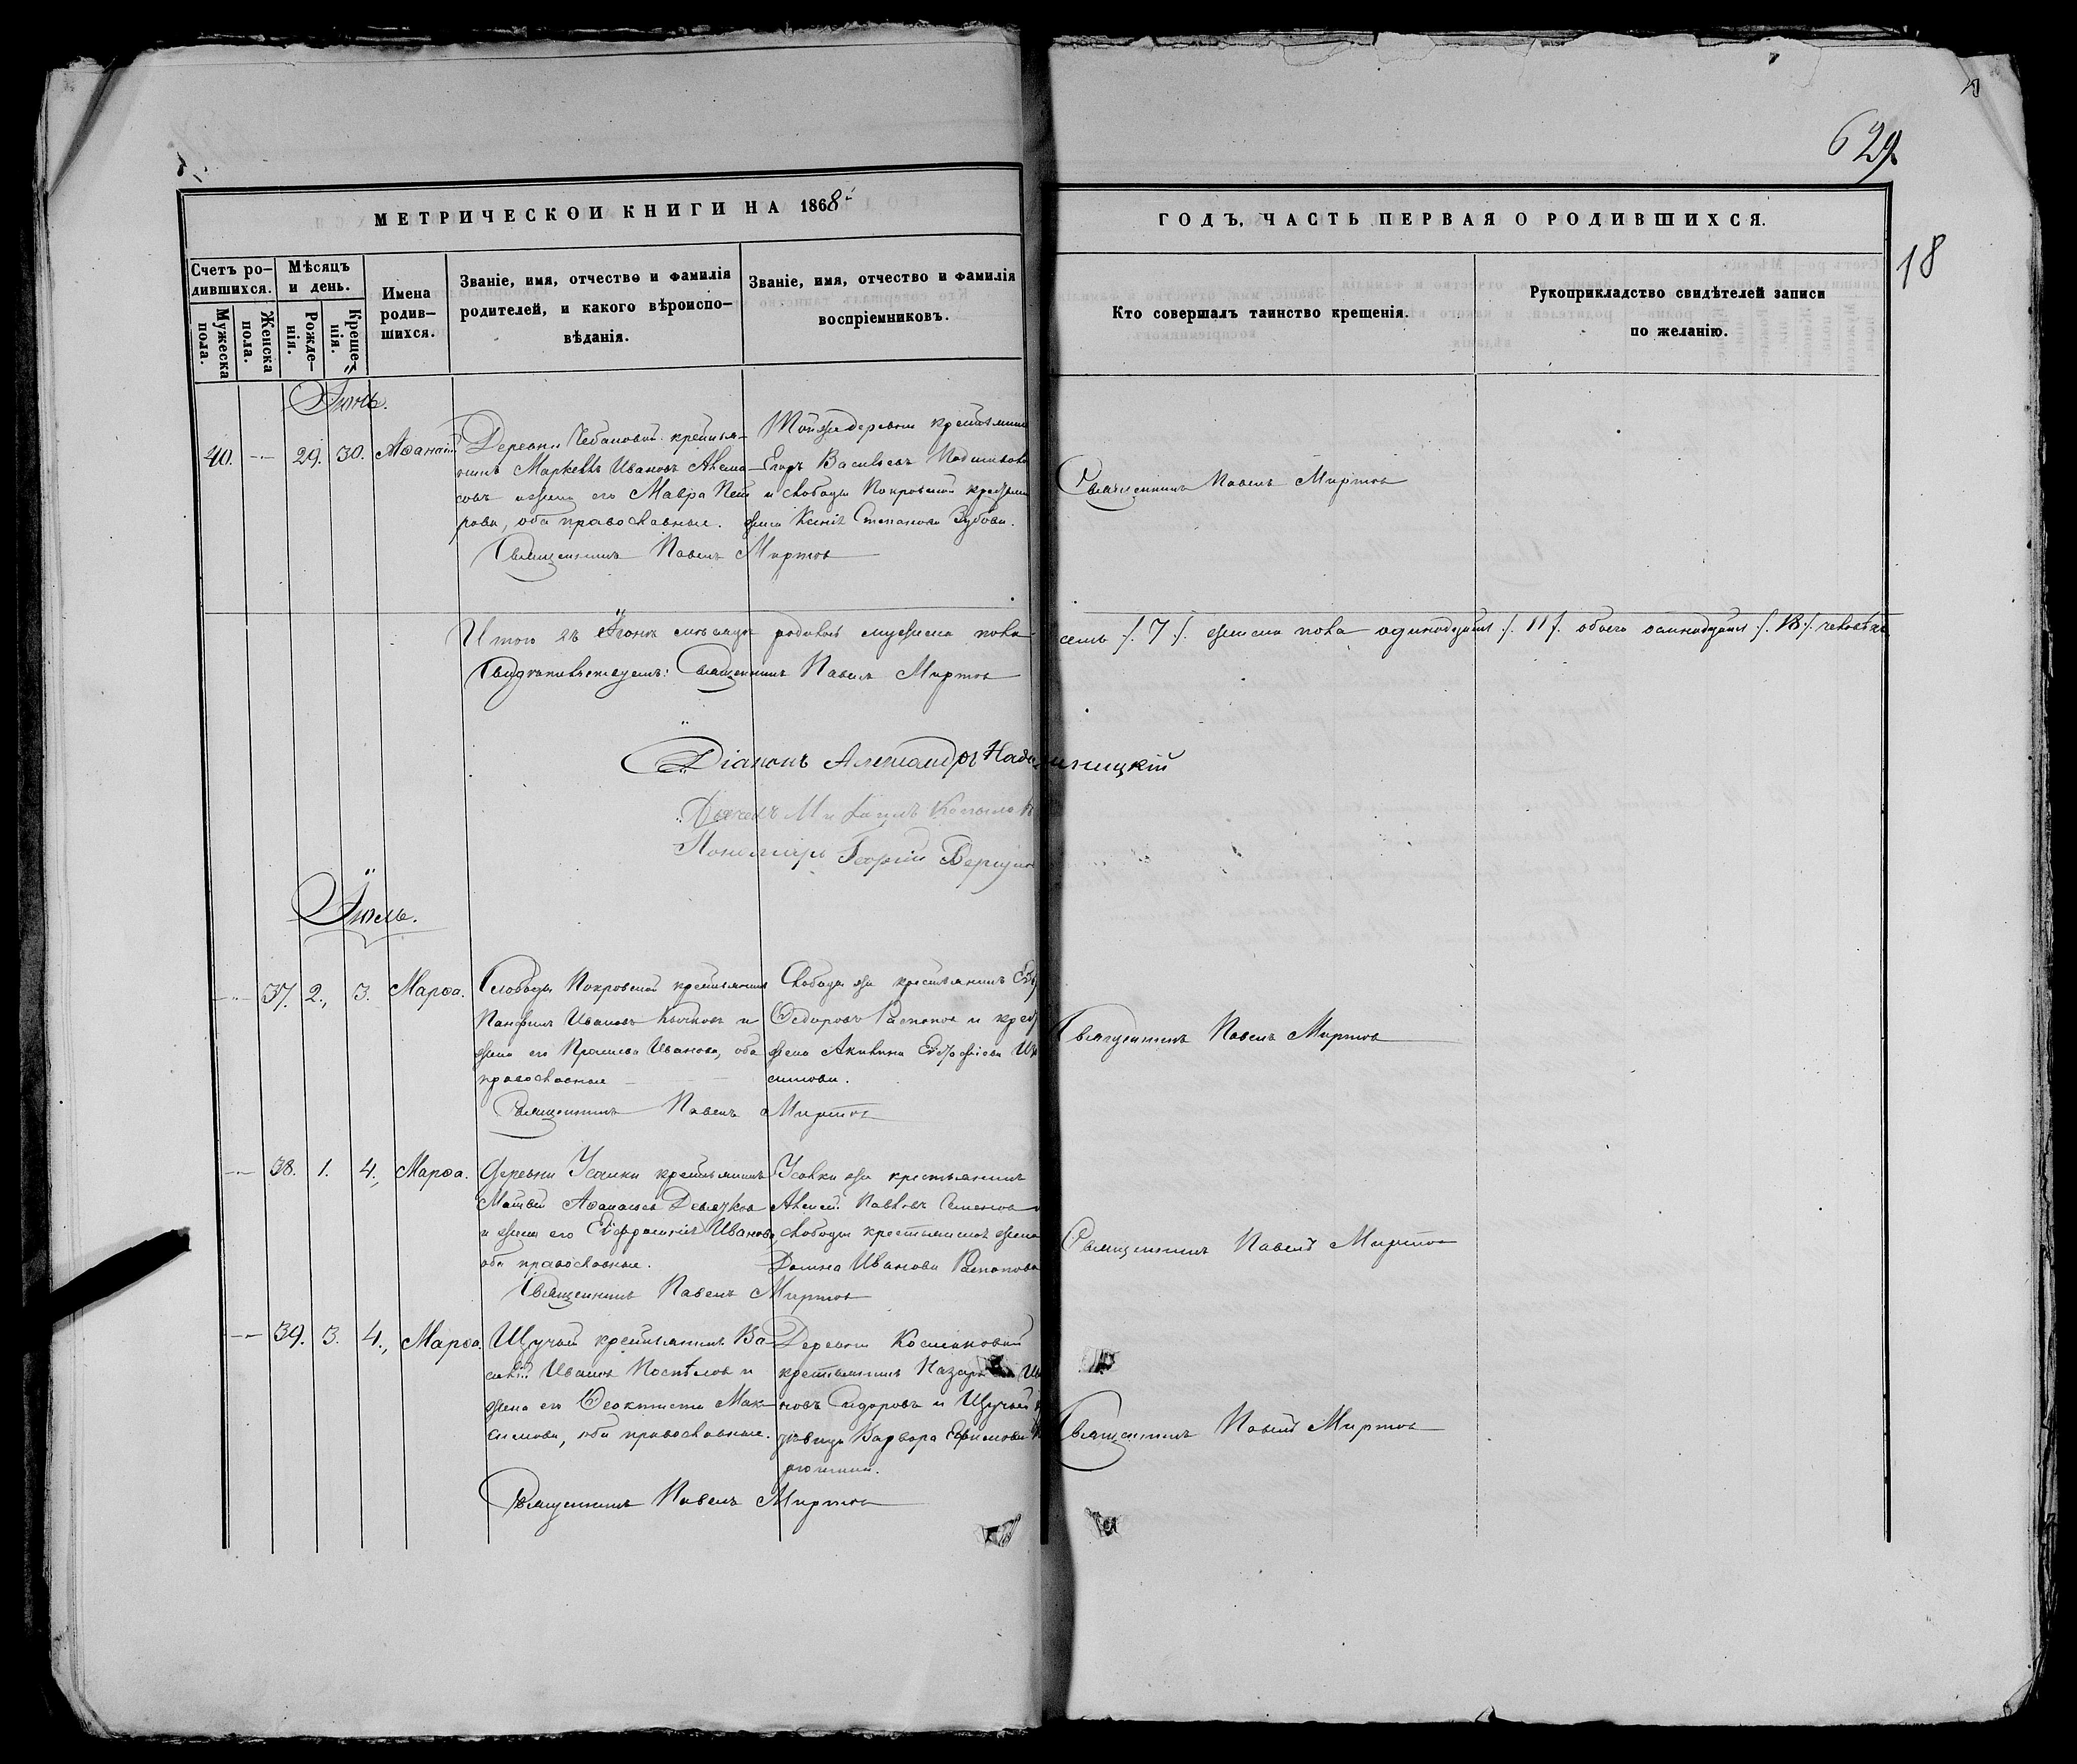 629
18
МЕТРИЧЕСКОИ КНИГИ НА 1868
ГОДЪ, ЧАСТЬ ПЕРВАЯ О РОДИВШИХСЯ.
Счетъ ро-
дившихся.
Мужеска
пола.
Женска
пола.
Мѣсяцъ
и день.
Рожде-
нія.
Креще-
нія.
Имена
родив-
шихся.
Званіе, имя, отчество и фамилія
родителей, и какого вѣроиспо-
вѣданія.
Званіе, имя, отчество и фамилія
воспріемниковъ.
Кто совершалъ таинство крещенія.
Рукоприкладство свидѣтелей записи
по желанію.
Іюнь.
40. — 29. 30. Аѳанасій
Деревни Чебановой крестья-
нинъ Маркеллъ Ивановъ
и жена его Мавра Пет
рова, оба православные.
Тойже деревни крестьянин
Егоръ Васильевъ
и слободы Покровской крестьян
жена Ксенія Степанова Зубова.
Священникъ Павелъ Миртовъ
Священникъ Павелъ Миртовъ
Итого въ Іюнѣ мѣсяцѣ родилось мужеска пола
семь /. 7 /. женска пола одинадцать /. 11 /. обоего осмнадцать /. 18 /. человѣкъ
Свидѣтельствуемъ: Священникъ Павелъ Миртовъ
Діаконъ Александръ
Дьячекъ Михаилъ Копыловъ
Пономарь Георгій
Іюль.
— 37. 2. 3. Марѳа.
Слободы Покровской крестьянинъ
Панфилъ Ивановъ и
жена его Ивановна, оба
православные
Слободы же крестьянинъ
Ѳедоровъ Распоповъ и крест
жена Акилина
симова.
Священникъ Павелъ Миртовъ
Священникъ Павелъ Миртовъ
— 38. 1. 4. Марѳа.
Деревни Усалки крестьянинъ
Матвѣй Аѳанасьевъ Девятковъ
и жена его Евфросинія Иванова
оба православные.
Усалки же крестьянинъ
Алексѣй Павловъ Семеновъ и
слободы крестьянская жена
Домна Иванова Распопова
Священникъ Павелъ Миртовъ
Священникъ Павелъ Миртовъ
— 39. 3. 4. Марѳа.
Щучьей крестьянинъ Ва-
силій Ивановъ Поспѣловъ и
жена его Ѳеоктиста Мак-
симова, оба православные.
Деревни Космаковой
крестьянинъ Назаръ Ив
новъ Сидоровъ и Щучьей
дѣвица Варвара Ефимова
Священникъ Павелъ Миртовъ
Священникъ Павелъ Миртовъ